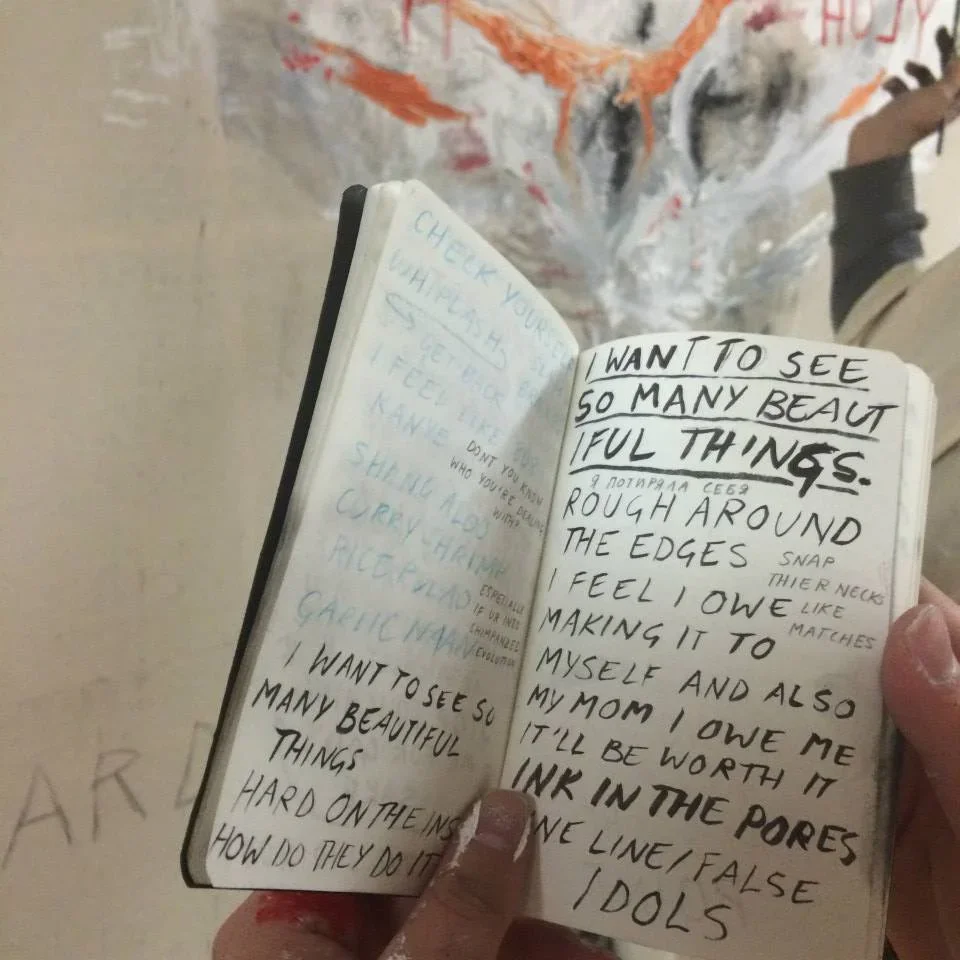 CHECK YOURSELF
WHIPLASH
GET BACK
I FEEL LIKE
KANYE
DONT YOU KNOW
WHO YOU'RE DEALING
WITH?
SHANG ALOO
CURRY-HRIMP
RICE PULAO
ESPECIALLY
IF UR INTO
CHIMPANZEE
EVOLUTION
GARLIC NAAN
I WANT TO SEE SO
MANY BEAUTIFUL
THINGS
HARD ON THE INS
HOW DO THEY DO IT
I WANT TO SEE
SO MANY BEAUT
IFUL THINGS.
Я ПОТИРЯЛА СЕБЯ
ROUGH AROUND
THE EDGES
SNAP
THIER NECKS
LIKE
MATCHES
I FEEL I OWE
MAKING IT TO
MYSELF AND ALSO
MY MOM I OWE ME
IT'LL BE WORTH IT
INK IN THE PORES
LINE/FALSE
IDOLS